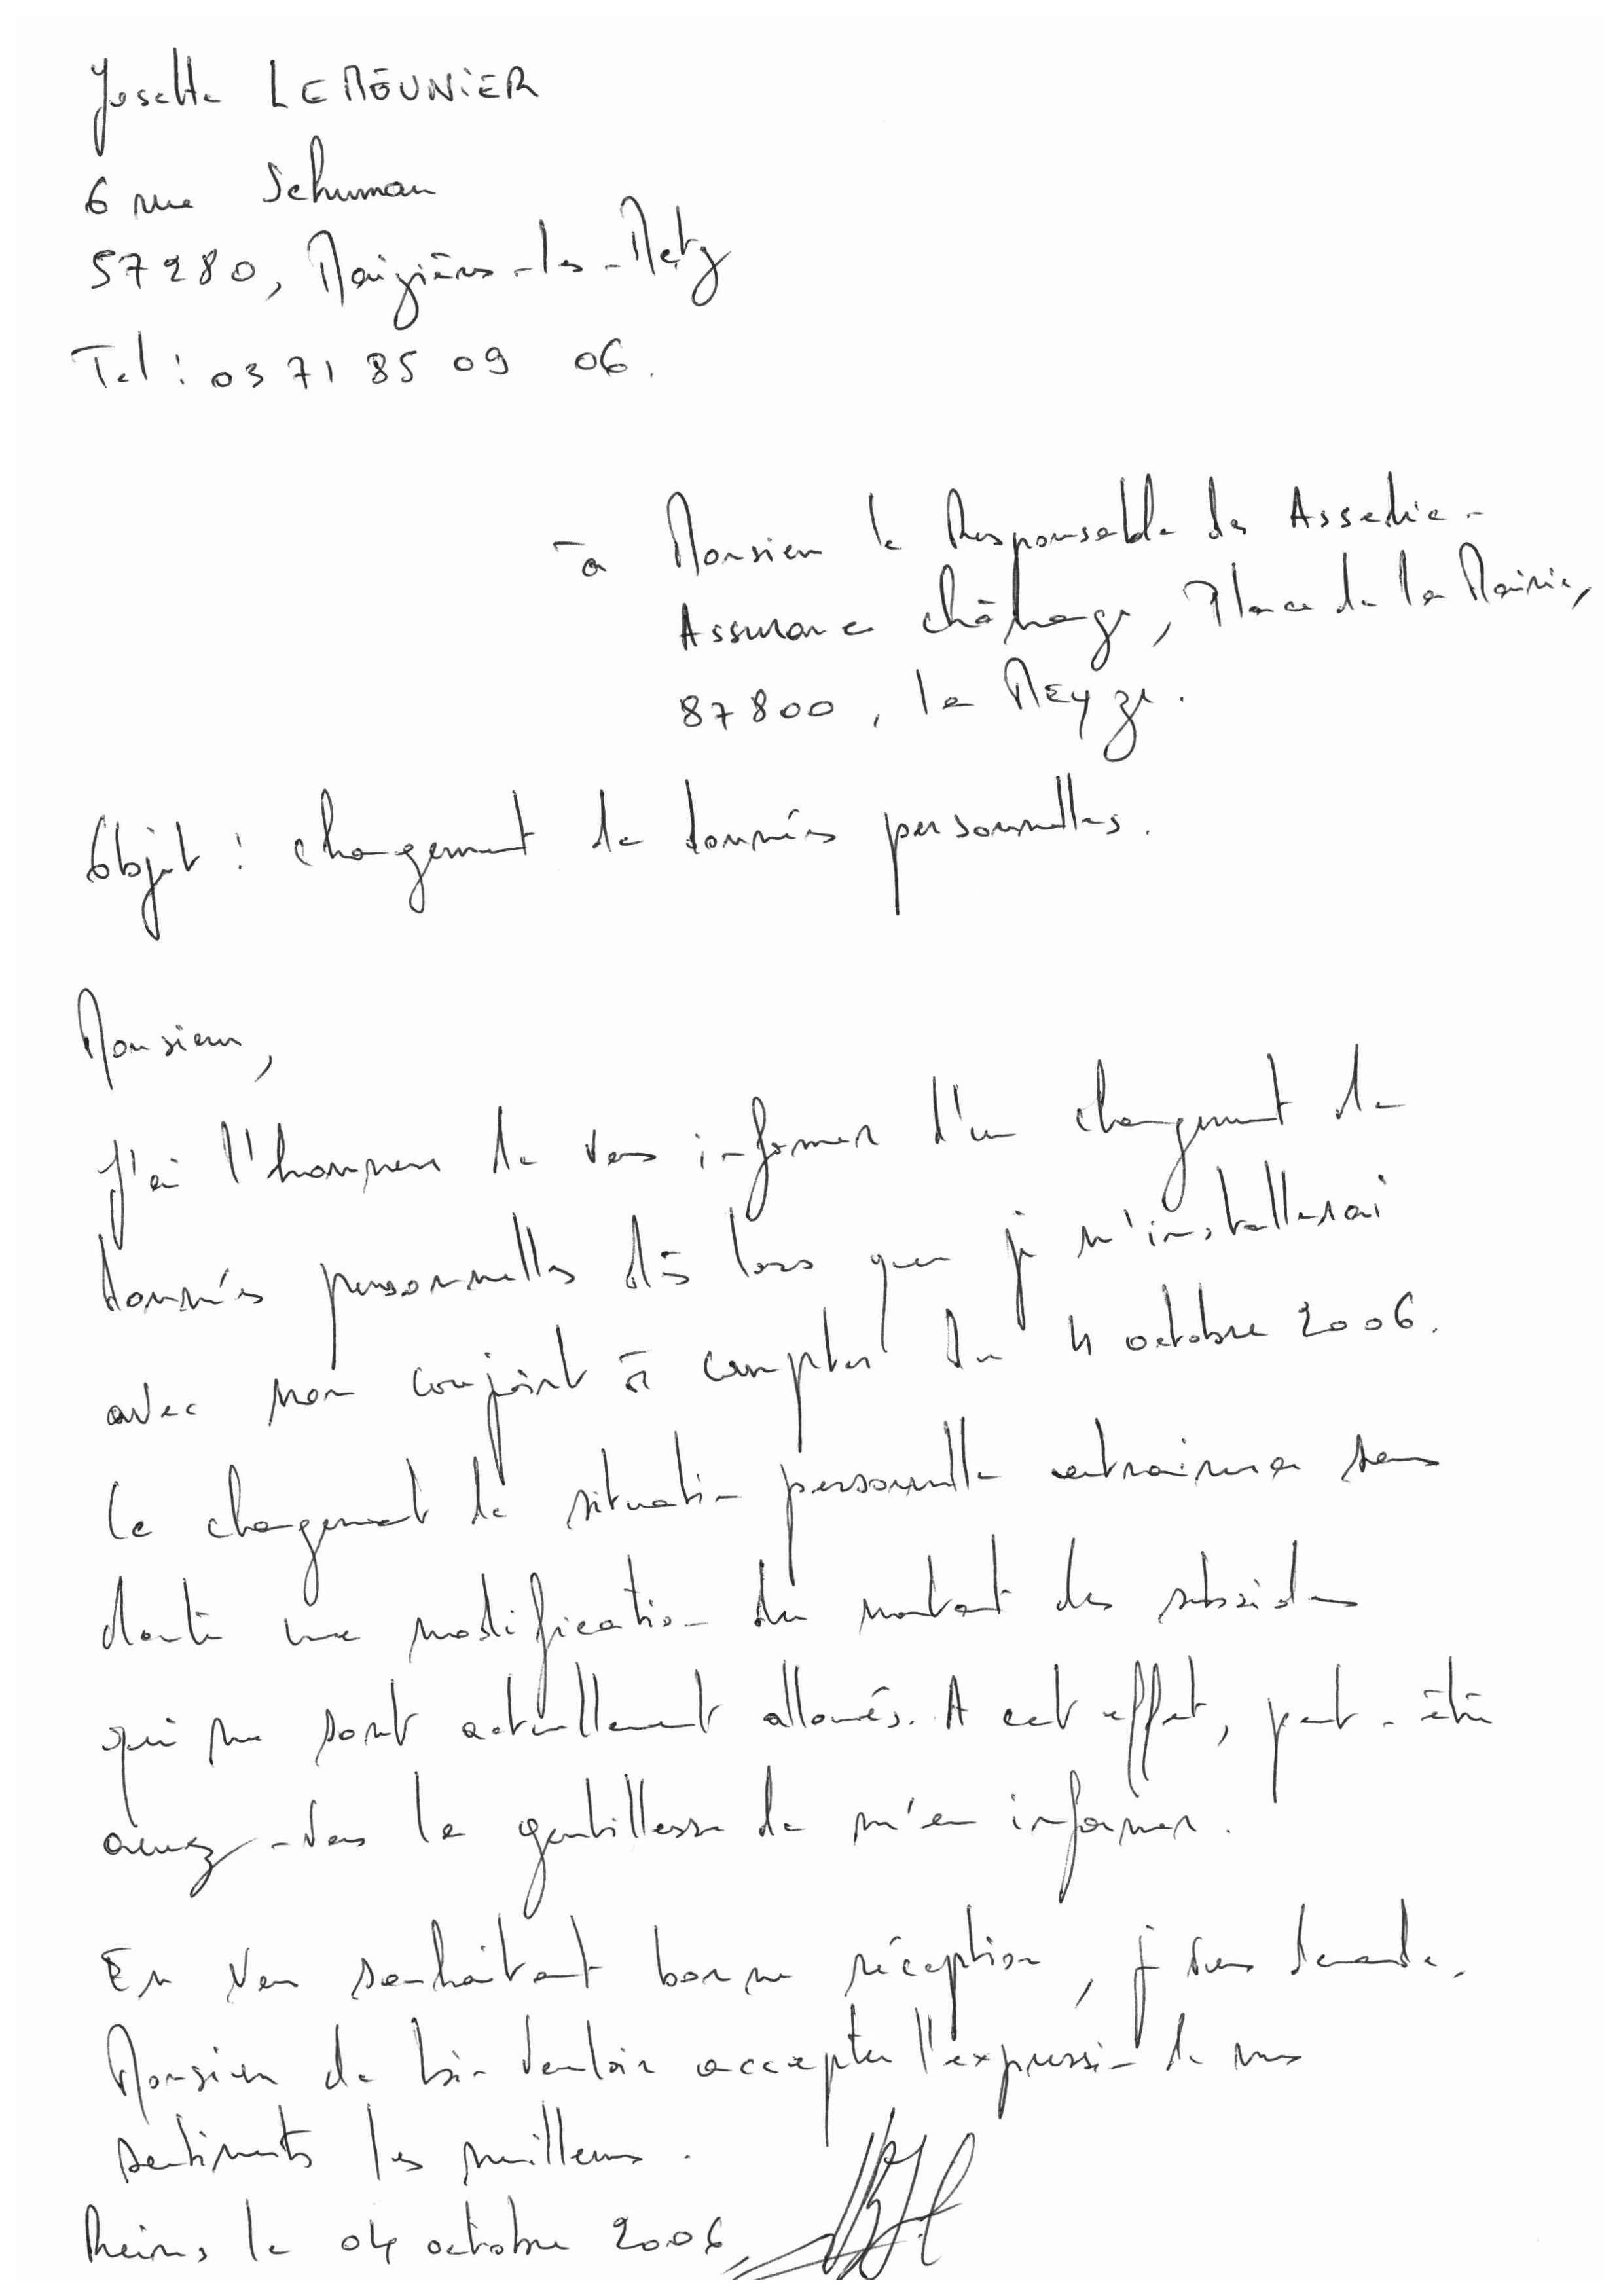 Josette LEMEUNIER
6 rue Schuman
57280, Maizières-les-Metz
Tel : 03 71 85 09 06.
à Monsieur le Responsable des Assedic -
Assurance chômage, Place de la Mairie,
87800, la MEYZE.
Objet : changement de données personnelles.
Monsieur,
J'ai l'honneur de vous informer d'un changement de
données personnelles dès lors que je m'installerai
avec mon conjoint à compter du 4 octobre 2006.
Ce changement de situation personnelle entrainera sans
doute une modification du montant des subsides
qui me sont actuellement alloués. A cet effet, peut-être
aurez-vous la gentillesse de m'en informer.
En vous souhaitant bonne réception, je vous demande,
Monsieur de bien vouloir accepter l'expression de mes
sentiments les meilleurs.
Reims, le 04 octobre 2006